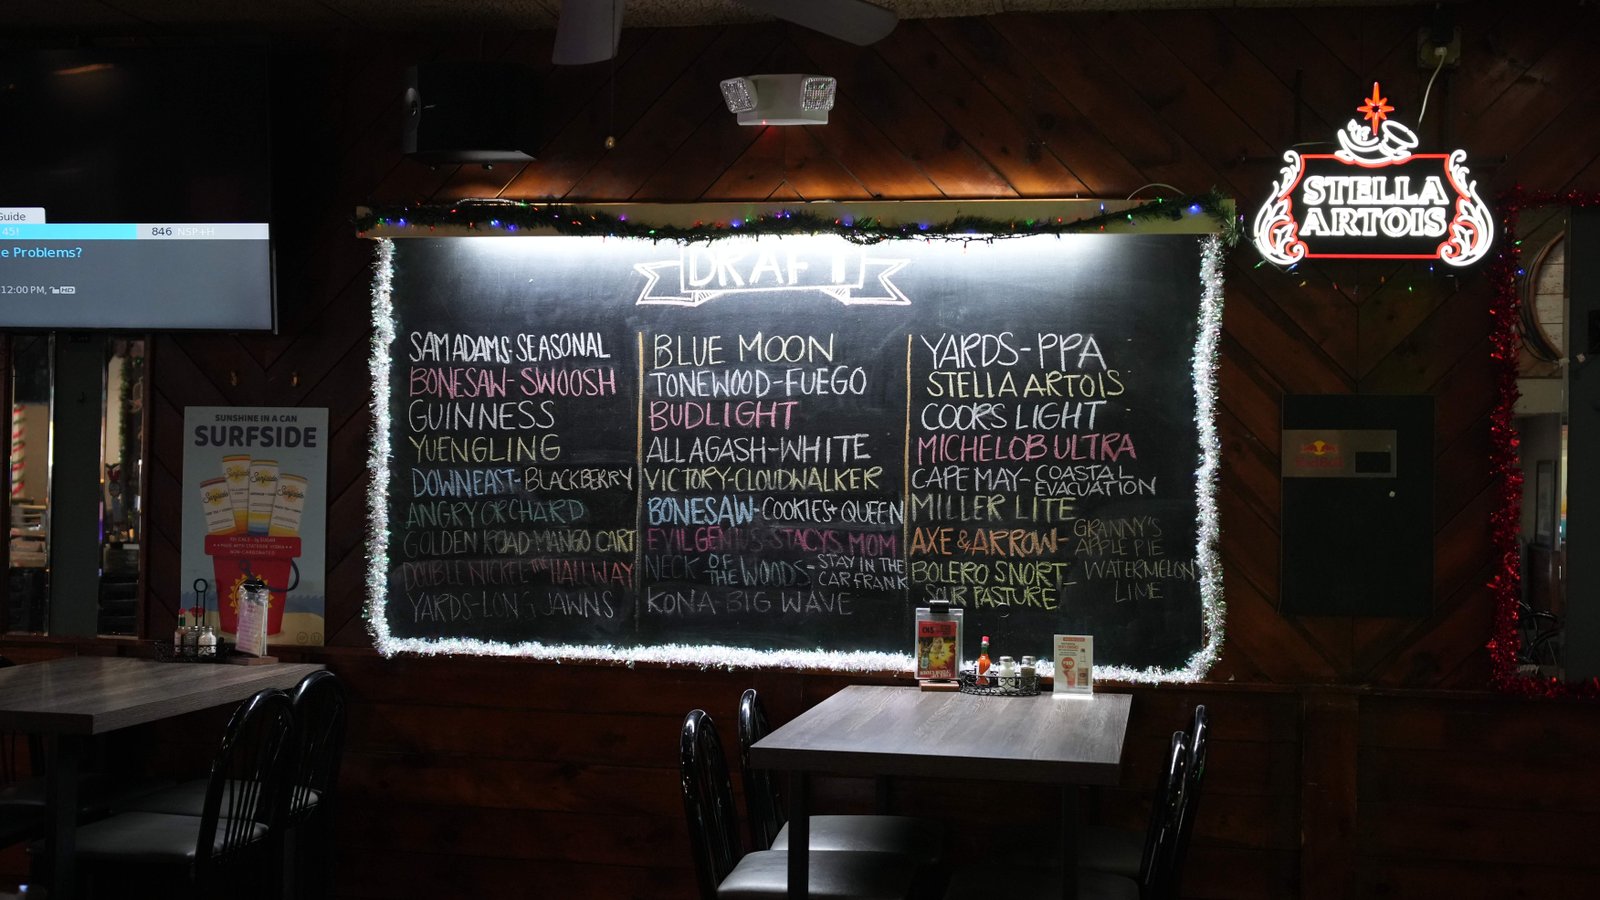 Guide
45!
846 NSP+H
e Problems?
12:00 PM, HD
SUNSHINE IN A CAN
SURFSIDE
Surfside
Surfside
Surfside
Surfside
DRAFT
SAM ADAMS-SEASONAL
BONESAW-SWOOSH
GUINNESS
YUENGLING
DOWNEAST-BLACKBERRY
ANGRY ORCHARD
GOLDEN ROAD-MANGO CART
DOUBLE NICKEL THE HALLWAY
YARDS-LONG JAWNS
BLUE MOON
TONEWOOD-FUEGO
BUDLIGHT
ALLAGASH-WHITE
VICTORY-CLOUDWALKER
BONESAW-COOKIES+QUEEN
EVIL GENIUS-STACYS MOM
NECK OF THE WOODS-STAY IN THE CAR FRANK
KONA-BIG WAVE
YARDS-PPA
STELLA ARTOIS
COORS LIGHT
MICHELOB ULTRA
CAPE MAY-COASTAL EVACUATION
MILLER LITE
AXE & ARROW-GRANNY'S APPLE PIE
BOLERO SNORT-WATERMELON LIME
SOUR PASTURE
STELLA
ARTOIS
Red Bull
$10